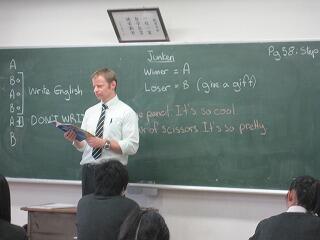 Junken
Pg 58: Step
Winner = A
Loser = B (give a gift)
A
B
A
A
B
A
B
Write English
DON'T WRIT
pencil. It's so cool
of scissors. It's so pretty